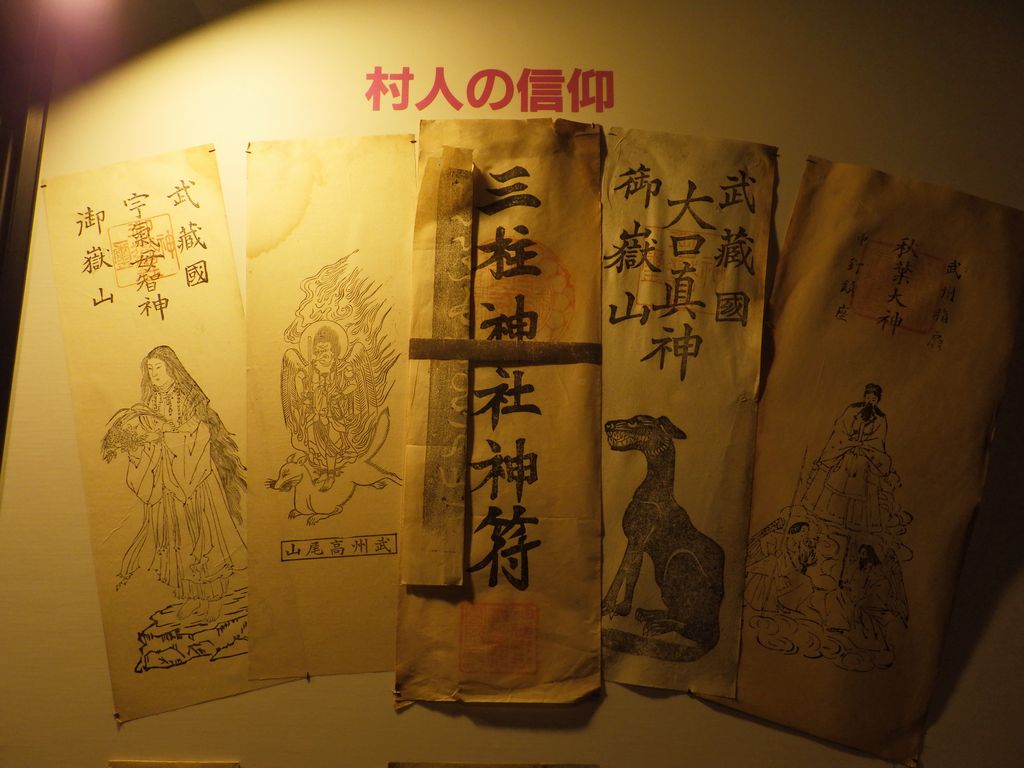 村人の信仰
武藏國
宇氣母智神
御嶽山
武州高尾山
三柱神社神符
武藏國
大口真神
御嶽山
秋葉大神